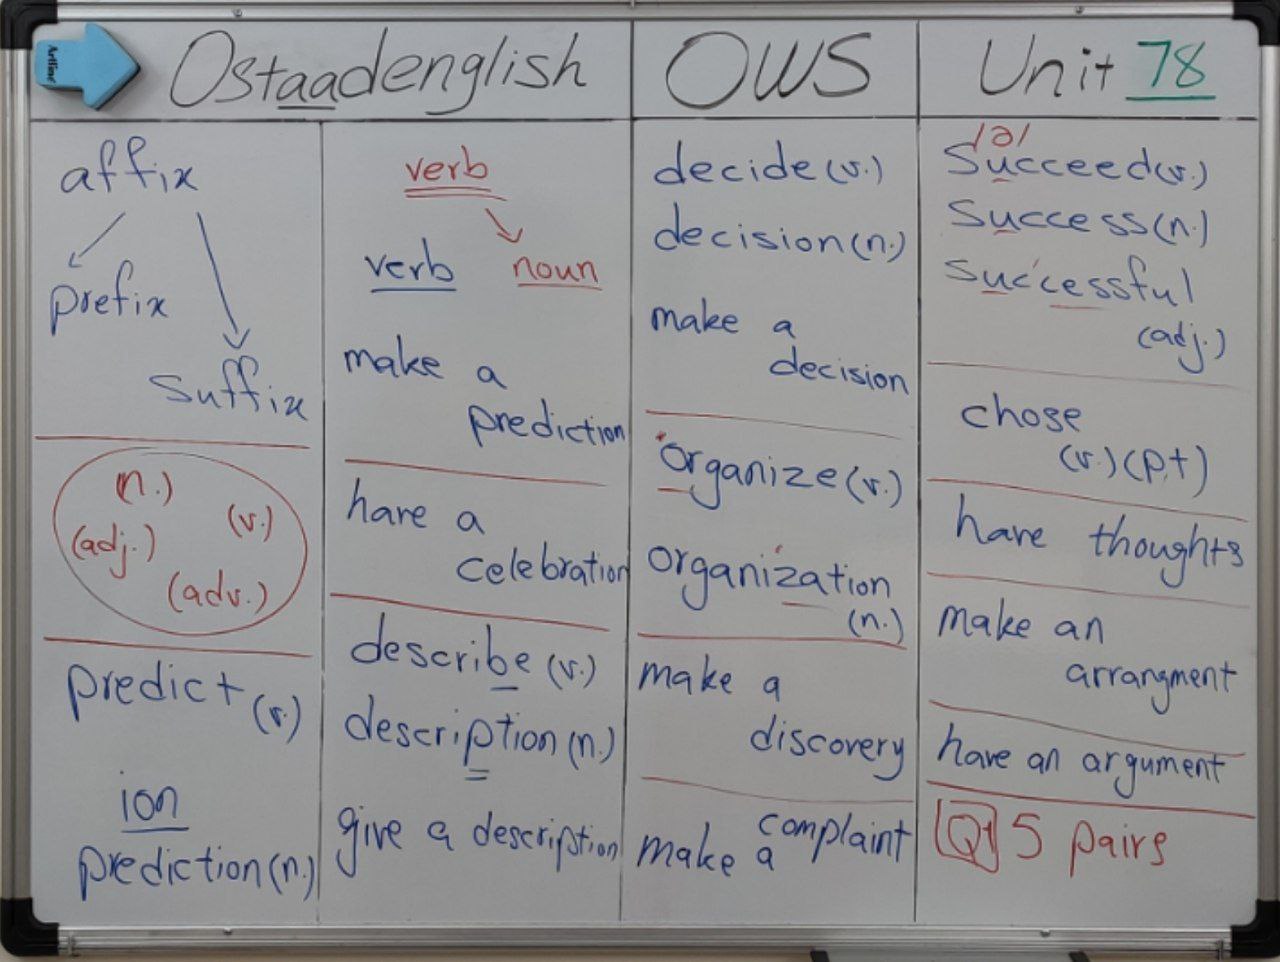 Artline
Ostaadenglish
OWS
Unit 78
affix
prefix
suffix
(n.)
(v.)
(adj.)
(adv.)
predict (v.)
ion
prediction (n.)
verb
verb noun
make a
prediction
have a
celebration
describe (v.)
description (n.)
give a description
decide (v.)
decision (n.)
make a
decision
organize (v.)
organization
(n.)
make a
discovery
make a complaint
/ə/
Succeed (v.)
Success (n.)
Successful
(adj.)
chose
(v.) (p.t)
have thoughts
make an
arrangment
have an argument
Q1 5 pairs